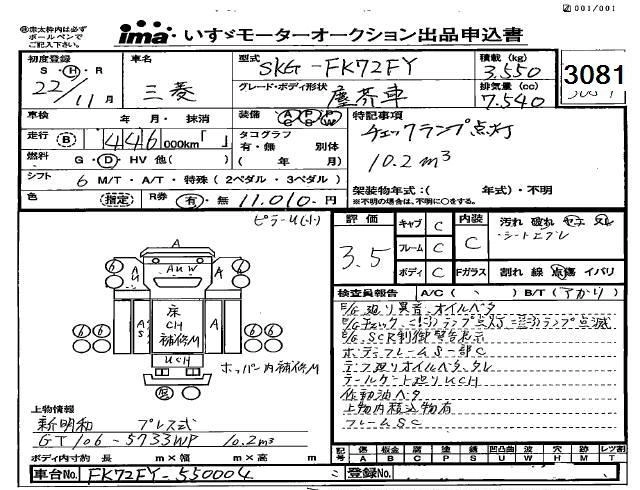 001/001
㊟太枠内は必ず
ボールペンで
ご記入下さい。
ima いすゞモーターオークション出品申込書
初度登録
S・H・R
22年11月
車名
三菱
型式
SKG-FK72FY
グレード・ボディ形状
塵芥車
積載 (kg)
3,550
排気量 (cc)
7,540
3081
車検 年 月・抹消
装備 AC PS PW
特記事項
チェックランプ点灯
10.2m³
走行 B 446 000km「 」
タコグラフ
有・無 別体
( 年 月)
燃料 G・D・HV 他( )
シフト 6 M/T・A/T・特殊(2ペダル・3ペダル)
架装物年式:( 年式)・不明
※不明の場合は、不明に○をする。
色 (指定) R券 有・無 11,010円
評価 3.5
キャブ C
フレーム C
ボディ C
内装 C
Fガラス
汚れ 破れ
・シートスレ
割れ 線 点傷 イバリ
検査員報告 A/C( ) B/T(
E/G廻り異音、オイルベタ
E/G、SCR制御警告表示
ボディフレームS一部C
デフ廻りオイルベタ、タレ
テールゲート廻りUCH
作動油ベタ
上物内積込物有
フレームSC
A
AUW
AU
A
床
CH
補修M
AS
A
UCH
ホッパー内補修M
6
6
6
6
上物情報
新明和 プレス式
GT106-5733WP 10.2m³
ボディ内寸約 長 m×幅 m×高 m
記号 傷 A 板金 B 腐 C 塗 P 錆 S 凹凸曲 U 波 W 穴 跡 M レツ割 T
車台No. FK72FY-550004
登録No.